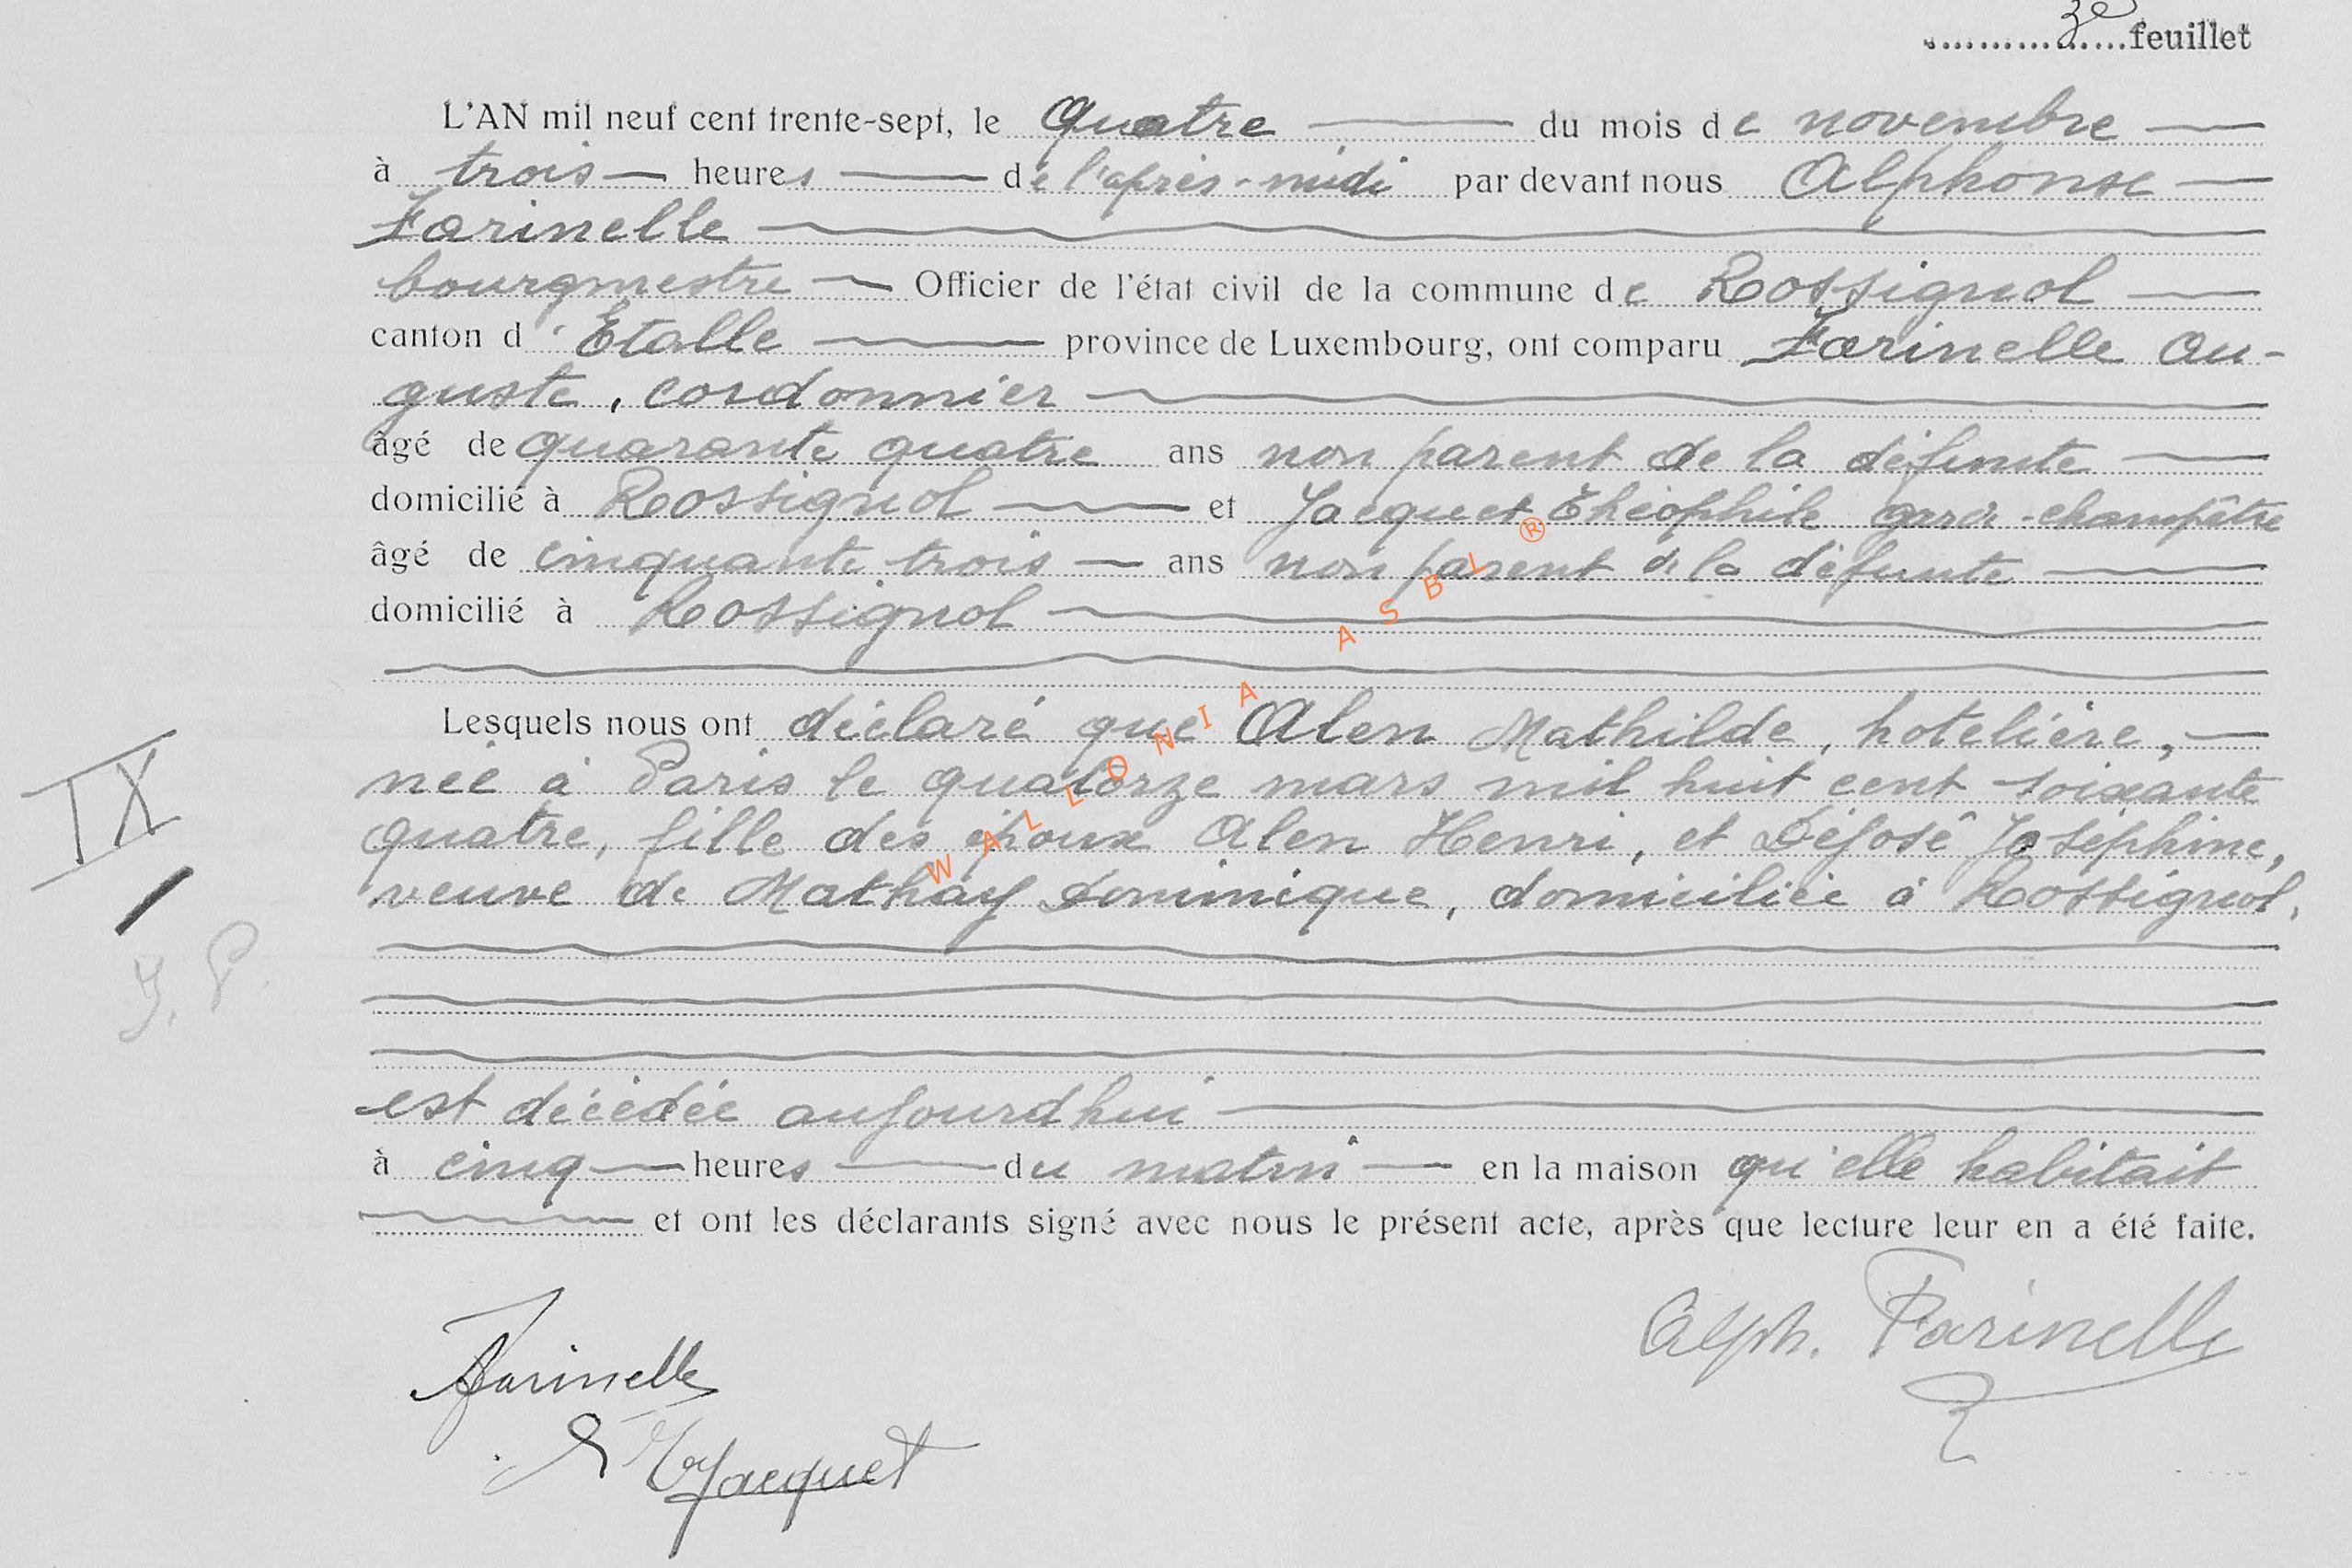 3e feuillet
L'AN mil neuf cent trente-sept, le Quatre du mois de novembre
à trois heures de l'après-midi par devant nous Alphonse
Farinelle
bourgmestre Officier de l'état civil de la commune de Rossignol
canton d'Etalle province de Luxembourg, ont comparu Farinelle Au-
guste, cordonnier
âgé de quarante quatre ans non parent de la défunte
domicilié à Rossignol et Jacquet Théophile garde-champêtre
âgé de cinquante trois ans non parent de la défunte
domicilié à Rossignol
Lesquels nous ont déclaré que Alen Mathilde, hotelière,
née à Paris le quatorze mars mil huit cent soixante
quatre, fille des époux Alen Henri, et Déjosé Joséphine,
veuve de Mathay Dominique, domiciliée à Rossignol,
IX
J. P.
est décédée aujourd'hui
à cinq heures du matin en la maison qu'elle habitait
et ont les déclarants signé avec nous le présent acte, après que lecture leur en a été faite.
Alph. Farinelle
Farinelle
Jacquet
WALLONIA ASBL ®